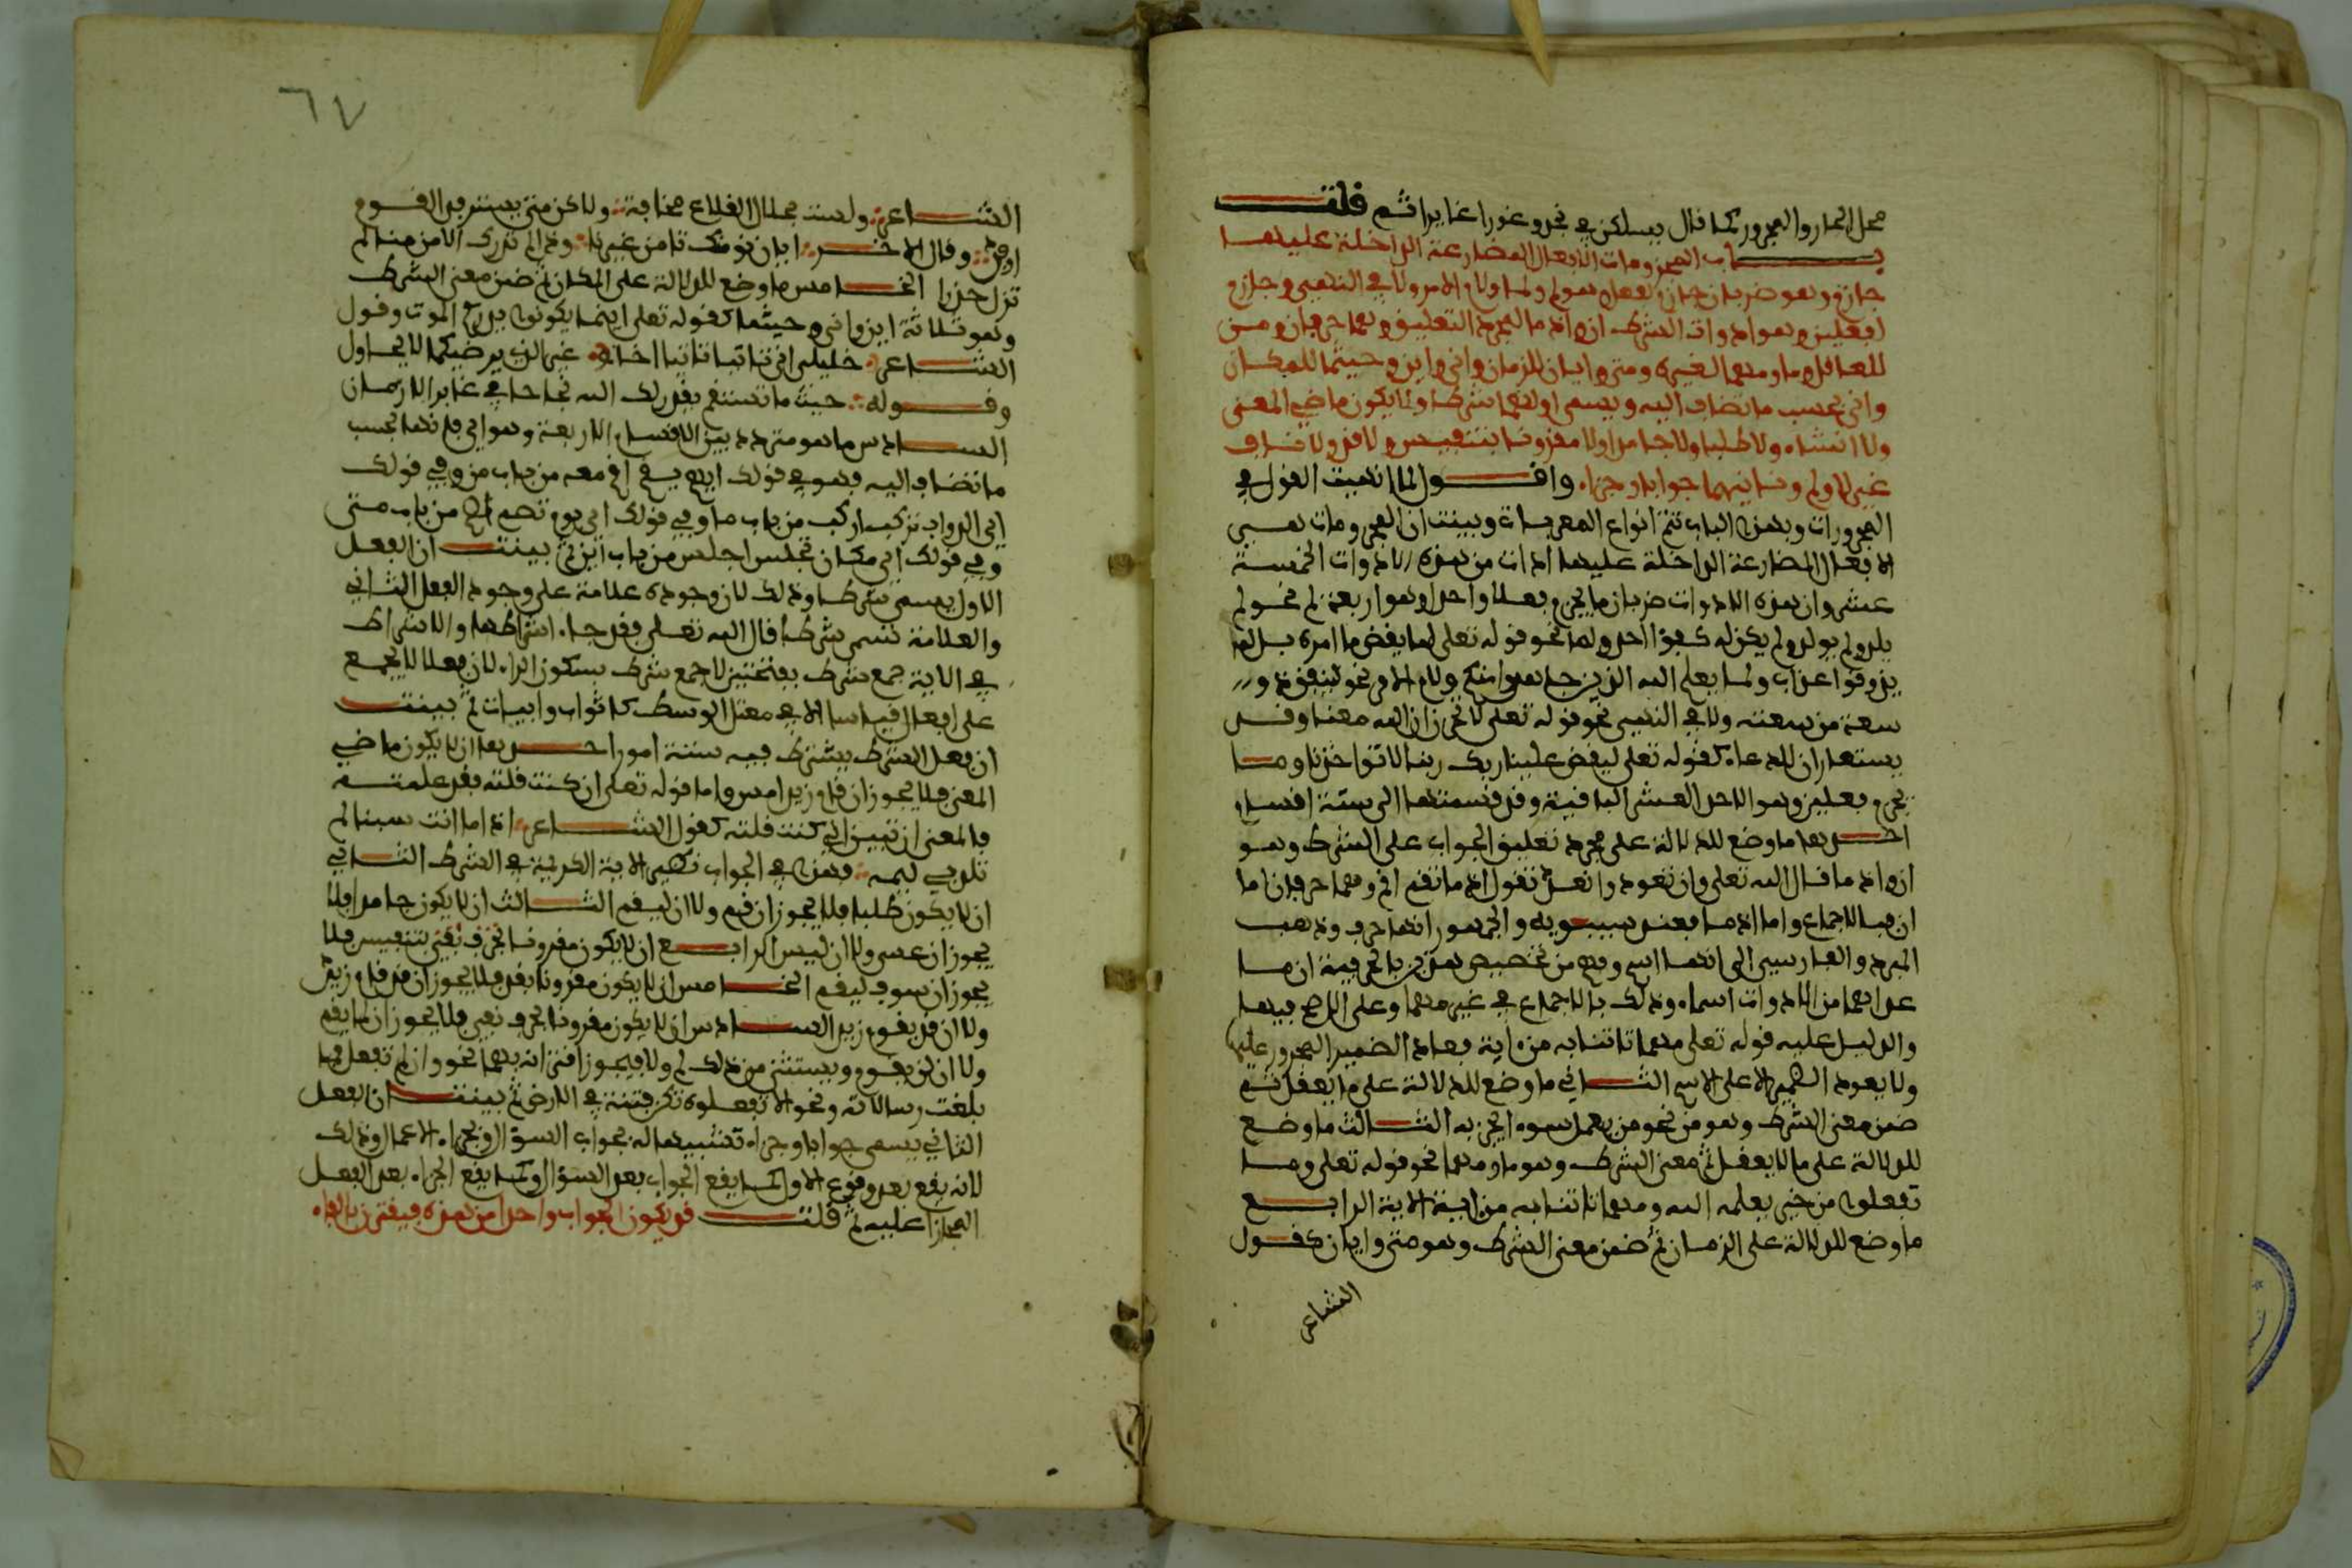 محل الجار والمجرور كما قال يسلكن في نجد وغورا غايرا ثم قلت
باب المجزومات الافعال المضارعة الداخلة عليها
جازم وهو ضربان جازم لفعل وهو لم ولما ولام الامر ولا في النهي وجازم
لفعلين وهو ادوات الشرط ان واذما لمجرد التعليق وهما حرفان ومن
للعاقل وما ومهما لغيره ومتى وايان للزمان وانى واين وحيثما للمكان
واي بحسب ما تضاف اليه ويسمى اولهما شرطا ولا يكون ماضي المعنى
ولا انشاء ولا طلبا ولا جامدا ولا مقرونا بتنفيس ولا قد ولا ناف
غير لا ولم وثانيهما جوابا وجزاء واقول لما انهيت القول في
المجرورات وبهذا الباب تتم انواع المعربات وبينت ان المجزومات هي
الافعال المضارعة الداخلة عليها اداة من هذه الادوات الخمسة
عشر وان هذه الادوات ضربان ما يجزم فعلا واحدا وهو اربعة لم نحو لم
يلد ولم يولد ولم يكن له كفؤا احد ولما نحو قوله تعلى لما يقض ما امره بل لما
يذوقوا عذاب ولما يعلم الله الذين جاهدوا منكم ولام الامر نحو لينفق ذو
سعة من سعته ولا في النهي نحو قوله تعلى لا تحزن ان الله معنا وقد
يستعاران للدعاء كقوله تعلى ليقض علينا ربك ربنا لا تواخذنا وما
يجزم فعلين وهو الاحد العشر الباقية وقد قسمتها الى ستة اقسام
احدها ما وضع للدلالة على مجرد تعليق الجواب على الشرط وهو
ان واذما قال الله تعلى وان تعودوا نعد وتقول اذ ما تقم اقم وهما حرفان اما
ان فبالاجماع واما اذما فعند سيبويه والجمهور انها حرف وذهب
المبرد والفارسي الى انها اسم وفهم من تخصيص هذين بالحرفية ان ما
عداهما من الادوات اسماء وذلك بالاجماع في غير مهما وعلى الاصح فيها
والدليل عليه قوله تعلى مهما تاتنا به من اية فعاد الضمير المجرور عليها
ولا يعود الضمير الا على الاسم الثاني ما وضع للدلالة على ما يعقل ثم
ضمن معنى الشرط وهو من نحو من يعمل سوءا يجز به الثالث ما وضع
للدلالة على ما لا يعقل ثم معنى الشرط وهو ما ومهما نحو قوله تعلى وما
تفعلوا من خير يعلمه الله ومهما تاتنا به من اية الاية الرابع
ما وضع للدلالة على الزمان ثم ضمن معنى الشرط وهو متى وايان كقول
الشاعر
٦٧
الشاعر ولست بحلال القلاع مخافة ولاكن متى يسترفد القوم
ارفد وقال الاخر ايان نومنك تامن غيرنا واذا لم تدرك الامن منا لم
تزل حذرا الخامس ما وضع للدلالة على المكان ثم ضمن معنى الشرط
وهو ثلاثة اين وانى وحيثما كقوله تعلى اينما يكونوا يدرككم الموت وقول
الشاعر خليلي انى تاتياني تاتيا اخا غير الذي يرضيكما لا يحاول
وقوله حيث ما تستقم يقدر لك الله نجاحا في غابر الازمان
السادس ما هو متردد بين الاقسام الاربعة وهو اي فانها بحسب
ما تضاف اليه فهو في قولك ايهم يقم اقم معه من باب من وفي قولك
اي الدواب تركب اركب من باب ما وفي قولك اي يوم تصم اصم من باب متى
وفي قولك اي مكان تجلس اجلس من باب اين ثم بينت ان الفعل
الاول يسمى شرطا وذلك لان وجوده علامة على وجود الفعل الثاني
والعلامة تسمى شرطا قال الله تعلى فقد جاء اشراطها والاشراط
في الاية جمع شرط بفتحتين لا جمع شرط بسكون الراء لان فعلا لا يجمع
على افعال قياسا الا في معتل الوسط كاثواب وابيات ثم بينت
ان فعل الشرط يشترط فيه ستة امور احدها ان لا يكون ماضي
المعنى فلا يجوز ان قام زيد امس واما قوله تعلى ان كنت قلته فقد علمته
فالمعنى ان تبين اني كنت قلته كقول الشاعر اذا ما انتسبنا لم
تلدني ليمة فهذا في الجواب نظير الاية الكريمة في الشرط الثاني
ان لا يكون طلبا فلا يجوز ان قم ولا ان ليقم الثالث ان لا يكون جامدا فلا
يجوز ان عسى ولا ان ليس الرابع ان لا يكون مقرونا بحرف تنفيس فلا
يجوز ان سوف ليقم الخامس ان لا يكون مقرونا بقد فلا يجوز ان قد قام زيد
ولا ان قد يقوم زيد السادس ان لا يكون مقرونا بحرف نفي فلا يجوز ان لما يقم
ولا ان لن يقوم ويستثنى من ذلك لم ولا فيجوز اقترانه بهما نحو وان لم تفعل فما
بلغت رسالاته ونحو الا تفعلوه تكن فتنة في الارض ثم بينت ان الفعل
الثاني يسمى جوابا وجزاء تشبيها له بجواب السؤال وبجزاء الاعمال وذلك
لانه يقع بعد وقوع الاول كما يقع الجواب بعد السؤال وكما يقع الجزاء بعد الفعل
المجازا عليه ثم قلت قد يكون الجواب واحدا من هذه فيقترن بالفاء